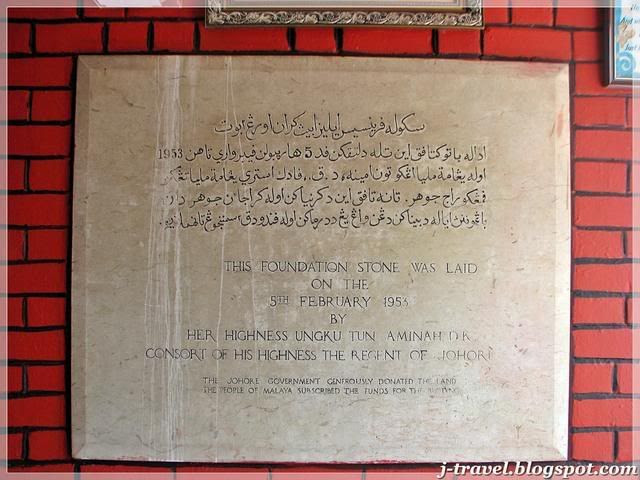 سكوله فرنسيس ايليزابيث كران اورڠ بوت
اداله باتو كتافق اين تله دلتقكن قد 5 هاريبولن فيبرواري تاهن 1953
اوله يڠامة مليا اڠكو تون امينه، د.ق.، فادك استري يڠامة مليا
راج جوهر. تانه تافق اين دكرنياكن اوله كراجأن جوهر دان
THIS FOUNDATION STONE WAS LAID
ON THE
5TH FEBRUARY 1953
BY
HER HIGHNESS UNGKU TUN AMINAH D.K.
CONSORT OF HIS HIGHNESS THE REGENT OF JOHORE
THE JOHORE GOVERNMENT GENEROUSLY DONATED THE LAND
THE PEOPLE OF MALAYA SUBSCRIBED THE FUNDS FOR THE BUILDING
j-travel.blogspot.com